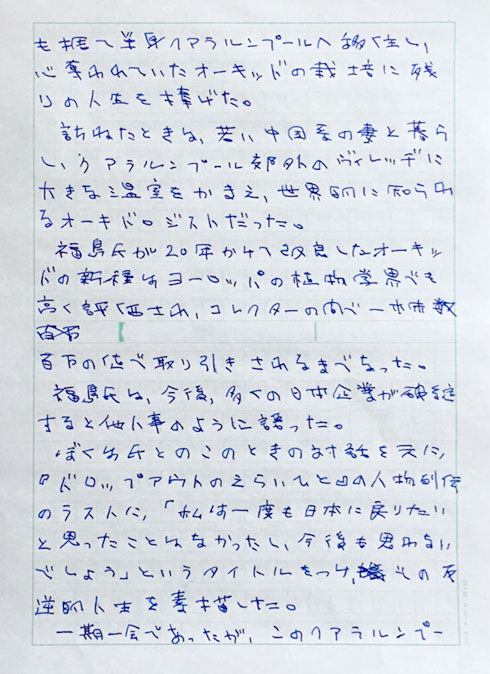 も捨て単身クアラルンプールへ移住し、
心奪われていたオーキッドの栽培に残
りの人生を捧げた。
訪ねたときは、若い中国系の妻と暮ら
し、クアラルンプール郊外のヴィレッヂに
大きな温室をかまえ、世界的に知られ
るオーキドロジストだった。
福島氏が20年かけて改良したオーキッ
ドの新種はヨーロッパの植物学界でも
高く評価され、コレクターの間で一株数
百万の値で取り引きされるまでなった。
福島氏は、今後、多くの日本企業が破綻
すると他人事のように語った。
ぼくは氏とのこのときの対話を元に、
『ドロップアウトのえらいひと』の人物列伝
のラストに、「私は一度も日本に戻りたい
と思ったことはなかったし、今後も思わない
でしょう」というタイトルをつけ、その反
逆的人生を素描した。
一期一会であったが、このクアラルンプー